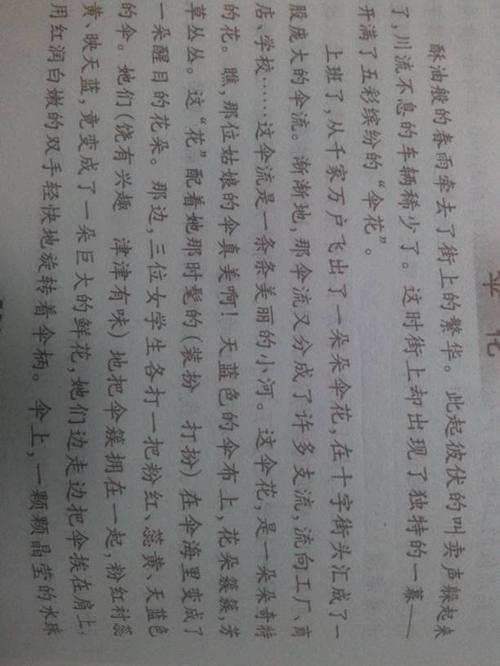 伞花
酥油般的春雨牵去了街上的繁华。此起彼伏的叫卖声躲起来
了,川流不息的车辆稀少了。这时街上却出现了独特的一幕——
开满了五彩缤纷的“伞花”。
上班了,从千家万户飞出了一朵朵伞花,在十字街头汇成了一
股庞大的伞流。渐渐地,那伞流又分成了许多支流,流向工厂、商
店、学校……这伞流是一条条美丽的小河。这伞花,是一朵朵奇特
的花。瞧,那位姑娘的伞真美啊!天蓝色的伞布上,花朵簇簇,芳
草丛丛。这“花”配着她那时髦的(装扮 打扮)在伞海里变成了
一朵醒目的花朵。那边,三位女学生各打一把粉红、蕊黄、天蓝色
的伞。她们(饶有兴趣 津津有味)地把伞簇拥在一起,粉红衬蕊
黄、映天蓝,竟变成了一朵巨大的鲜花,她们边走边把伞挨在肩上,
用红润白嫩的双手轻快地旋转着伞柄。伞上,一颗颗晶莹的水珠